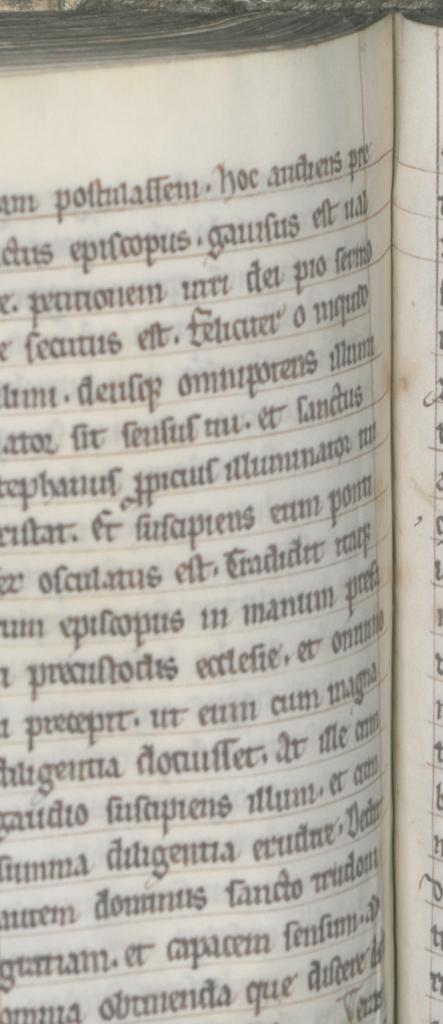 am postulassem. hoc audiens pre
ctus episcopus. gauisus est ual
e. petitionem uiri dei pro sermo
e secutus est. feliciter o inquid
deusq; omnipotens illum
ator sit sensus tui. et sanctus
tephanus ꝓpicius illuminator tui
ristat. Et suscipiens eum ponti
ex osculatus est. Tradidit itaq;
rum episcopus in manum prefa
i precustodis ecclesie. et omnino
i precepit. ut eum cum magna
diligentia docuisset. At ille cum
gaudio suscipiens illum. et cum
summa diligentia erudire. Dedit
autem dominus sancto trudoni
gratiam. et capacem sensum. ad
omnia obtinenda que discere